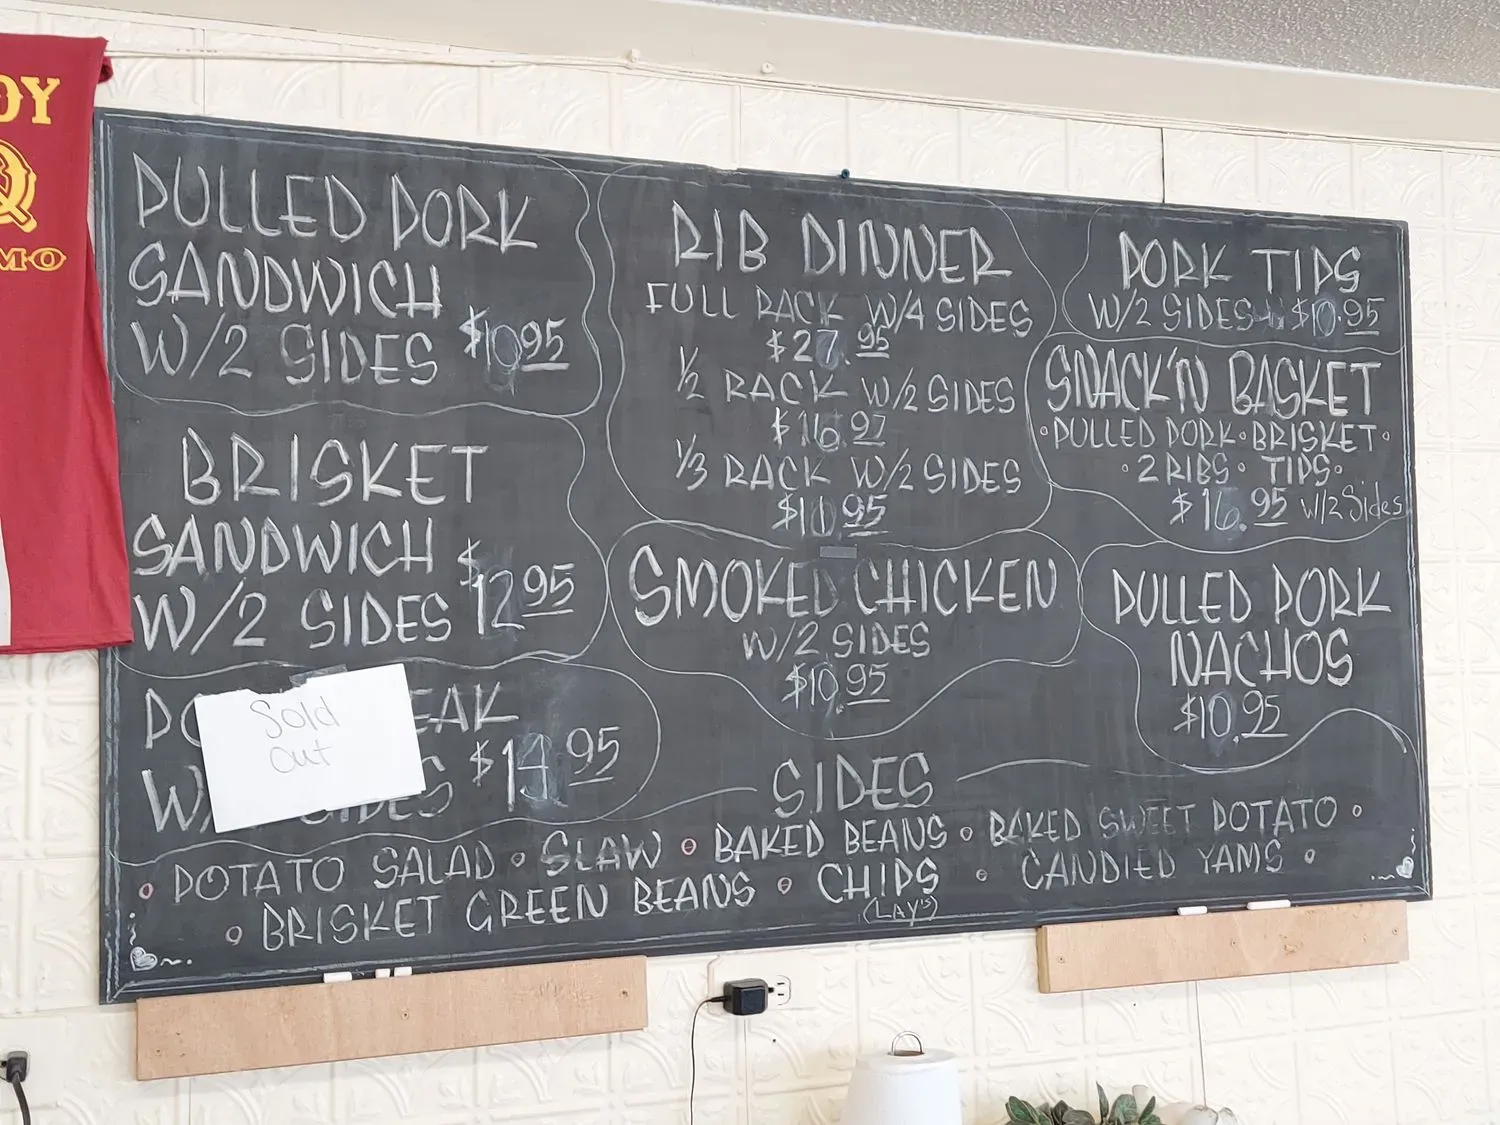 OY
MO
PULLED PORK
SANDWICH
W/2 SIDES $10.95
BRISKET
SANDWICH
W/2 SIDES $12.95
Sold
out
EAK
W/ SIDES $14.95
RIB DINNER
FULL RACK W/4 SIDES
$27.95
1/2 RACK W/2 SIDES
$16.97
1/3 RACK W/2 SIDES
$10.95
SMOKED CHICKEN
W/2 SIDES
$10.95
PORK TIPS
W/2 SIDES $10.95
SNACK'N BASKET
•PULLED PORK•BRISKET•
•2 RIBS• TIPS•
$16.95 W/2 Sides
PULLED PORK
NACHOS
$10.95
SIDES
• POTATO SALAD • SLAW • BAKED BEANS • BAKED SWEET POTATO •
• BRISKET GREEN BEANS • CHIPS • CANDIED YAMS •
(LAY'S)